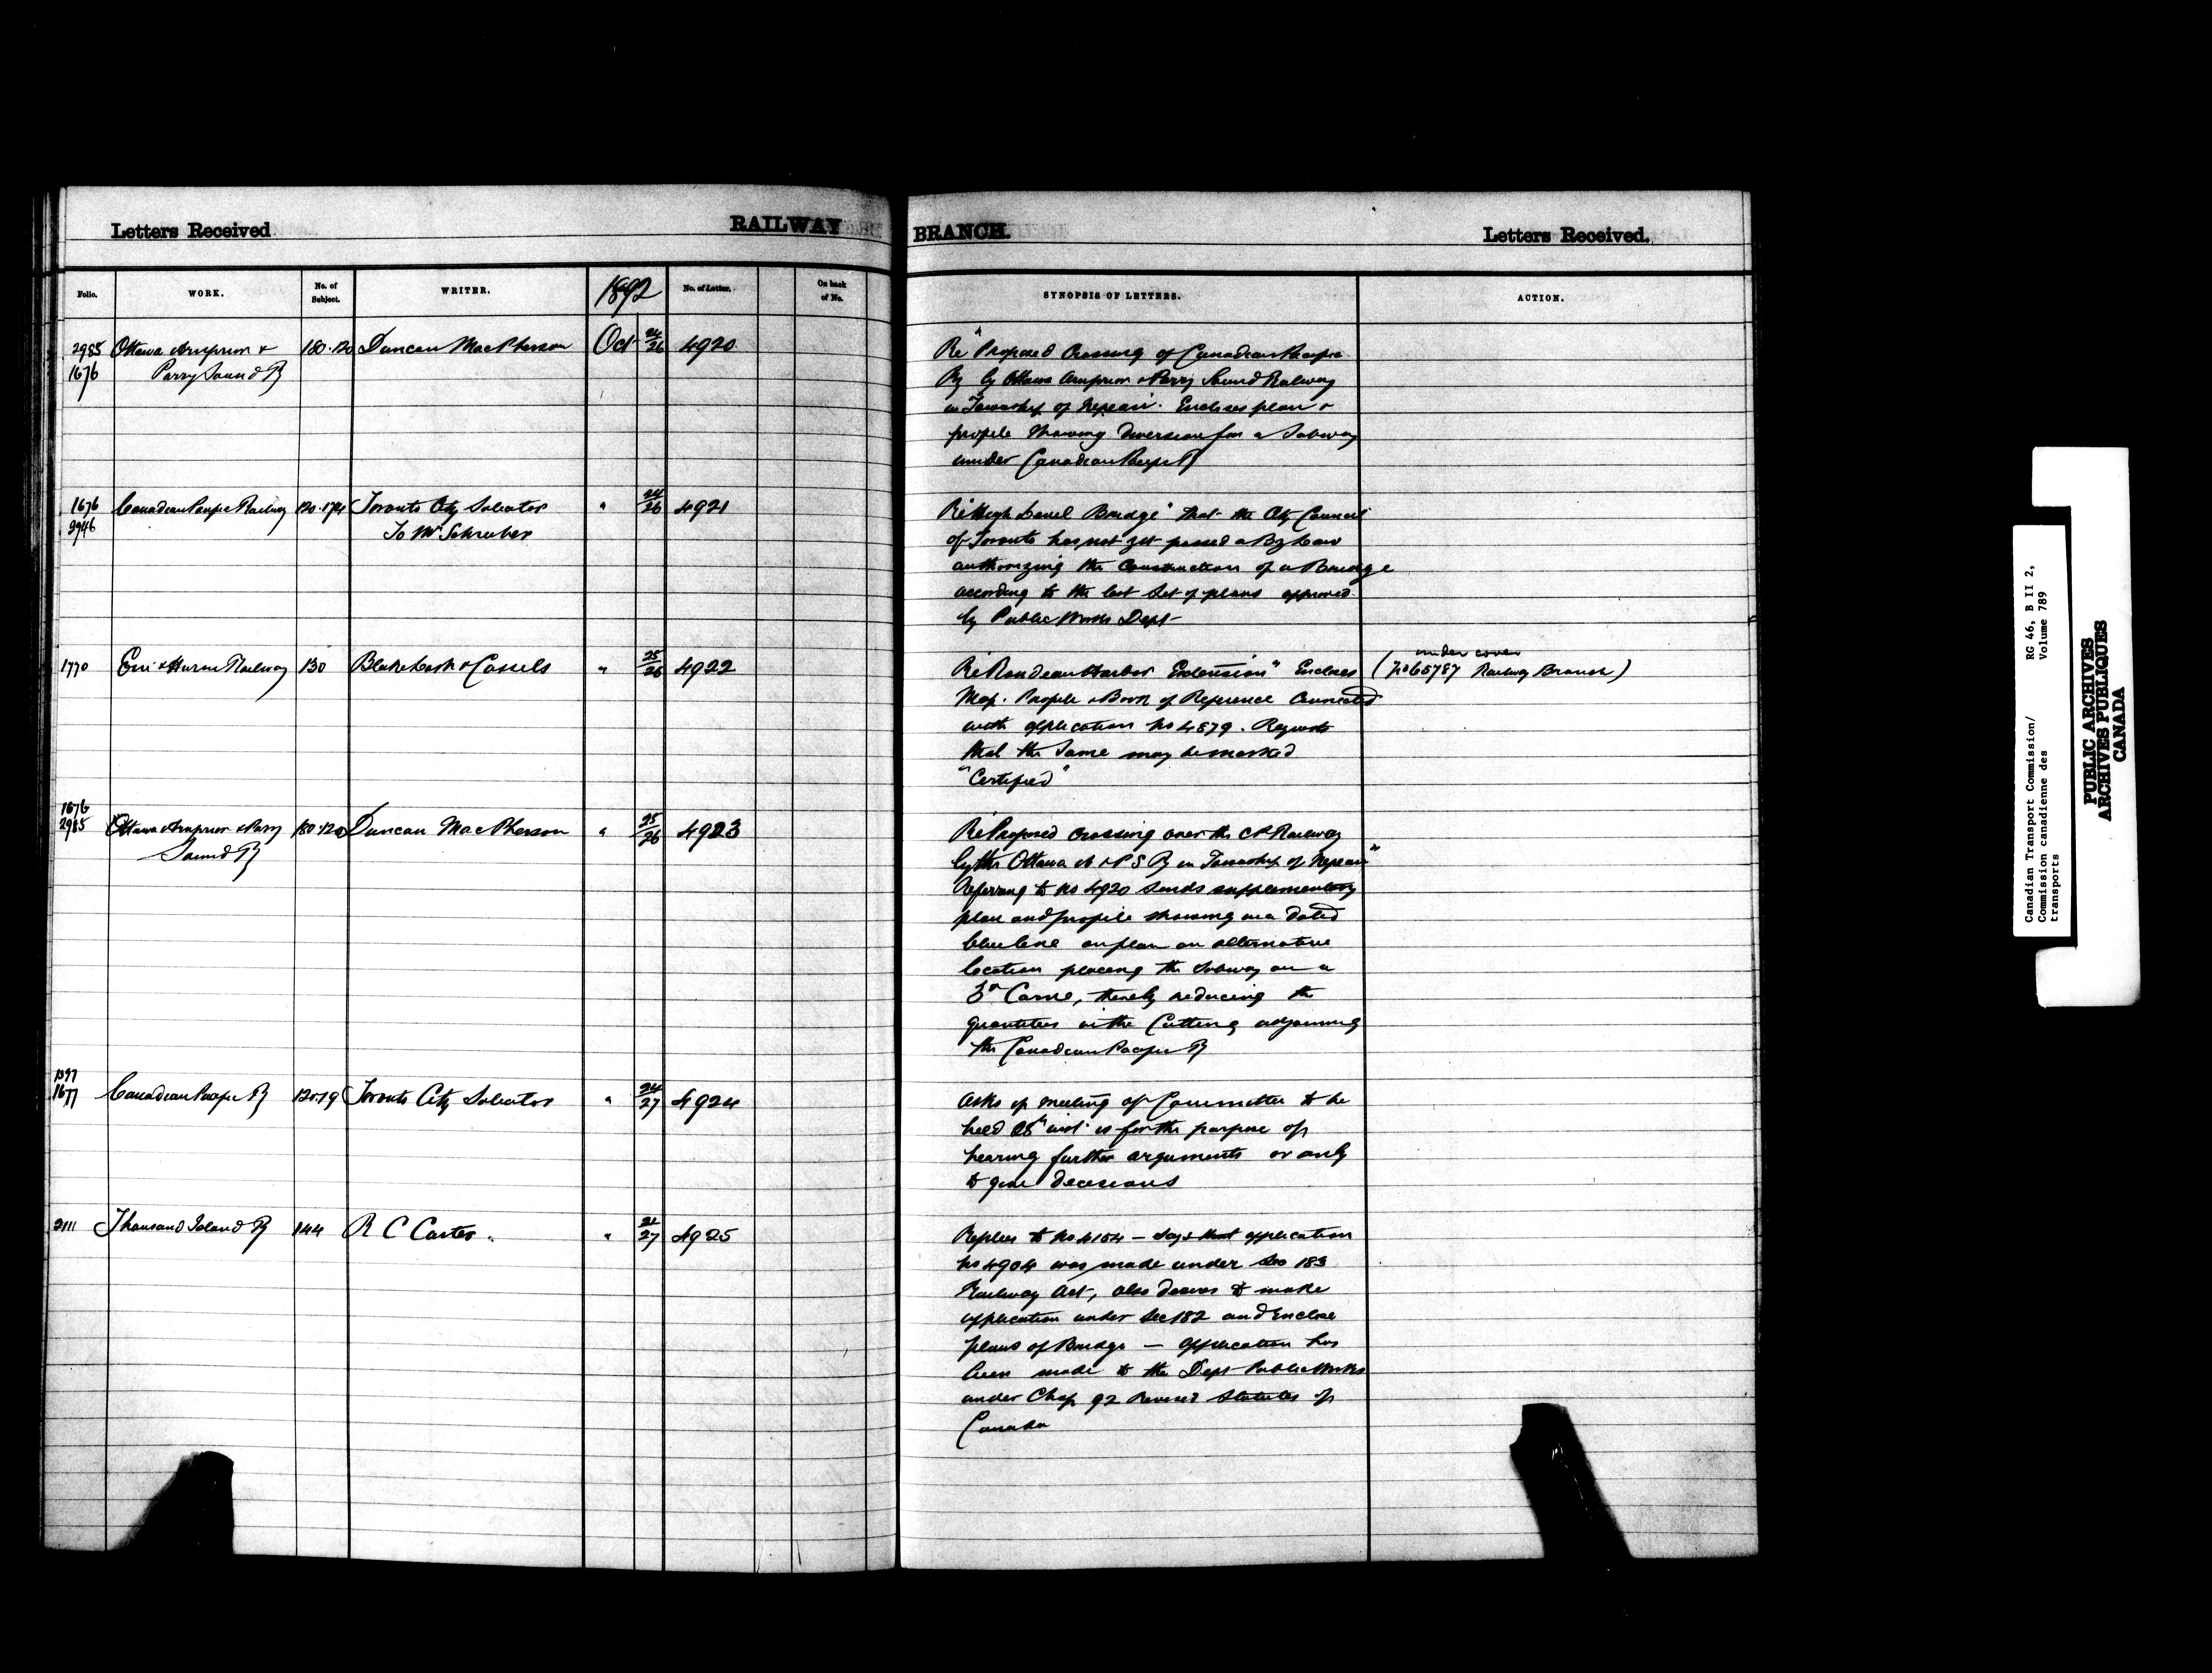 Letters Received RAILWAY BRANCH. Letters Received.
Folio. WORK. No. of Subject. WRITER. 1892 No. of Letter. On back of No. SYNOPSIS OF LETTERS. ACTION.
2985 Ottawa Arnprior & 180·120 Duncan MacPherson Oct 24/26 4920
1676 Parry Sound Ry
Re "Proposed Crossing of Canadian Pacific
Ry by Ottawa Arnprior & Parry Sound Railway
in Township of Nepean. Encloses plan &
profile showing diversion for a Subway
under Canadian Pacific Ry
1676 Canadian Pacific Railway 120·174 Toronto City Solicitor " 24/26 4921
2946 To Mr Schreiber
Re "High Level Bridge" that the City Council
of Toronto has not yet passed a By Law
authorizing the Construction of a Bridge
according to the last set of plans approved
by Public Works Dept
1770 Erie & Huron Railway 130 Blake Lash & Cassels " 25/26 4922
Re "Rondeau Harbor Extension" Encloses
Map. Profile & Book of Reference Connected
with application No 4879. Requests
that the same may be marked
"Certified"
under cover
(No 65787 Railway Branch)
1676
2985 Ottawa Arnprior & Parry 180·120 Duncan MacPherson " 25/26 4923
Sound Ry
Re "Proposed crossing over the CP Railway
by the Ottawa A & P S Ry in Township of Nepean"
Referring to No 4920 sends supplementary
plan and profile showing in a doted
blue line on plan an alternative
location placing the Subway on a
3° Curve, thereby reducing the
quantities in the Cutting adjoining
the Canadian Pacific Ry
1677 Canadian Pacific Ry 120·19 Toronto City Solicitor " 24/27 4924
Asks if meeting of Committee to be
held 28th inst is for the purpose of
hearing further arguments or only
to give decisions
2111 Thousand Island Ry 144 R C Carter. " 21/27 4925
Replies to No 4154 — says that application
No 4904 was made under Sec 183
Railway Act, also desires to make
application under Sec 182 and Enclose
plans of Bridge — Application has
been made to the Dept Public Works
under Chap 92 Revised Statutes of
Canada
Canadian Transport Commission/ RG 46, B II 2,
Commission canadienne des Volume 789
transports
PUBLIC ARCHIVES
ARCHIVES PUBLIQUES
CANADA